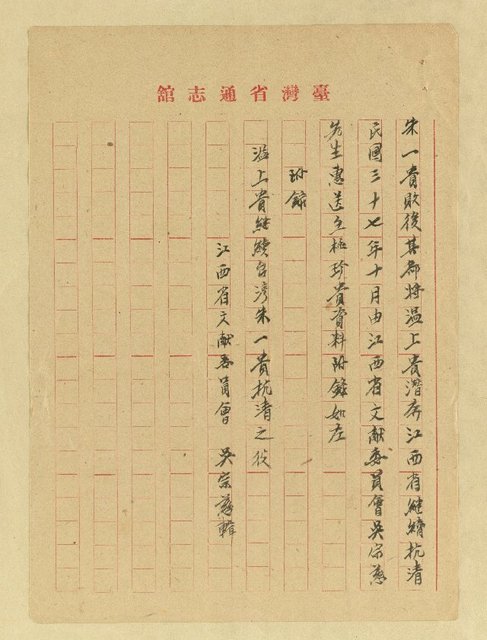 臺灣省通志館
朱一貴敗後其部將溫上貴潛府江西省繼續抗清
民國三十七年十月由江西省文献委員會吳宗慈
先生惠送至極珍貴資料附錄如左
附錄
溫上貴繼續台湾朱一貴抗清之役
江西省文献委員會 吳宗慈輯